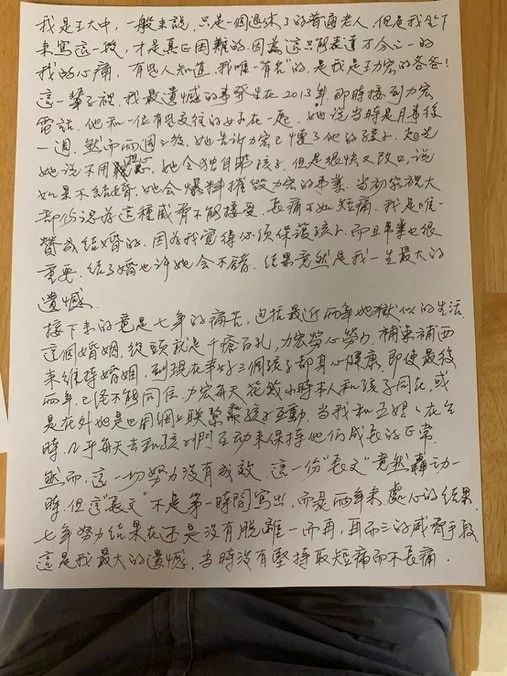 我是王大中，一般來說，只是一個退休了的普通老人，但是我坐下
來寫這一段，才是真正困難的，因為這只能表達万分之一的
我的心痛，有些人知道，我唯一"有名"的，是我是王力宏的爸爸！
這一輩子裡，我最遺憾的事發生在2013年，那時接到力宏
電話，他和一位有些交往的女子在一起，她說當時是月事後
一週，然而兩週之後，她告訴力宏已懷了他的孩子，起先
她說不用擔心，她会独自養孩子，但是很快又改口，說
如果不結婚，她会爆料摧毀力宏的事業，當初家裡大
部份認為這種威脅不能接受，長痛不如短痛，我是唯一
贊成結婚的，因為我覺得必須保護孩子，而且事業也很
重要，結了婚也許她会不錯，結果竟然是我一生最大的
遺憾。
接下來的竟是七年的痛苦，包括最近兩年地獄似的生活，
這個婚姻，從頭就是千瘡百孔，力宏勞心勞力，補東補西
來維持婚姻，到現在事好三個孩子都身心健康，即使最後
兩年，已經不能同住，力宏每天花幾小時本人和孩子同在，或
是在外地是也用網上联繫靠孩子互動，當我和王媽媽在台
時，几乎每天去和孩子們互动來保持他們成長的正常，
然而，這一切努力没有成效，這一份"長文"竟然轟动一
時，但這"長文"不是第一時間寫出，而是兩年來處心的結果，
七年努力結果在还是没有脫離一而再，再而三的威脅手段
這是我最大的遺憾，當時没有堅持取短痛而不長痛．